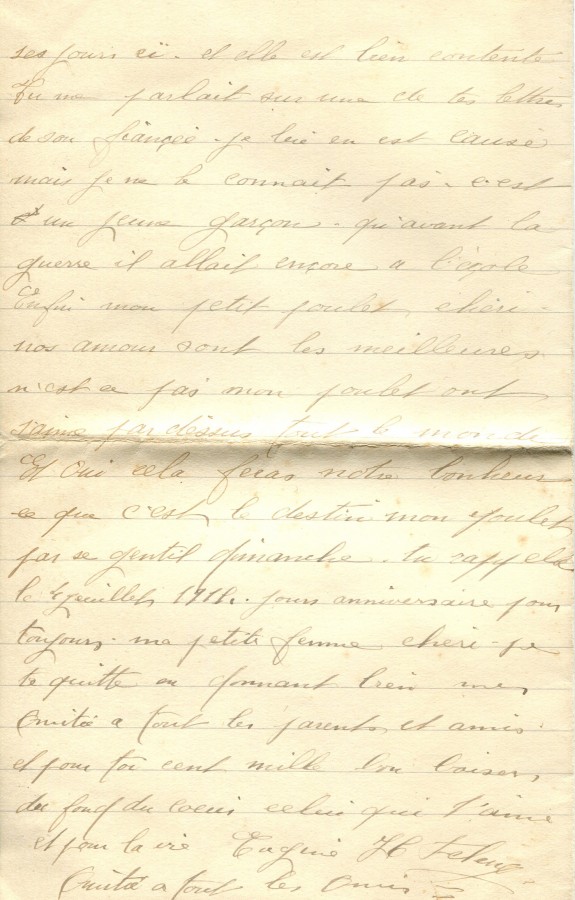 ses jours ci. et elle est bien contente
Tu me parlait sur une de tes lettres
de son fiançée. je lui en est causé
mais je ne le connait pas. c'est
un jeune garçon. qu'avant la
guerre il allait encore a l'école
Enfin mon petit poulet chéri.
nos amour sont les meilleures
n'est ce pas mon poulet ont
s'aime par dessus tout le monde
Et Oui cela feras notre bonheur
ce que c'est le destin mon poulet
par se gentil dimanche. tu rappelle
le juillet jours anniversaire pour
toujours. ma petite femme cheri. je
te quitte en donnant bien mes
Amitié a tout les parents et amis
et pour toi cent mille bon baisers
du fond du coeur celui qui t'aime
et pour la vie Eugène H
Amitié a tout les amis.